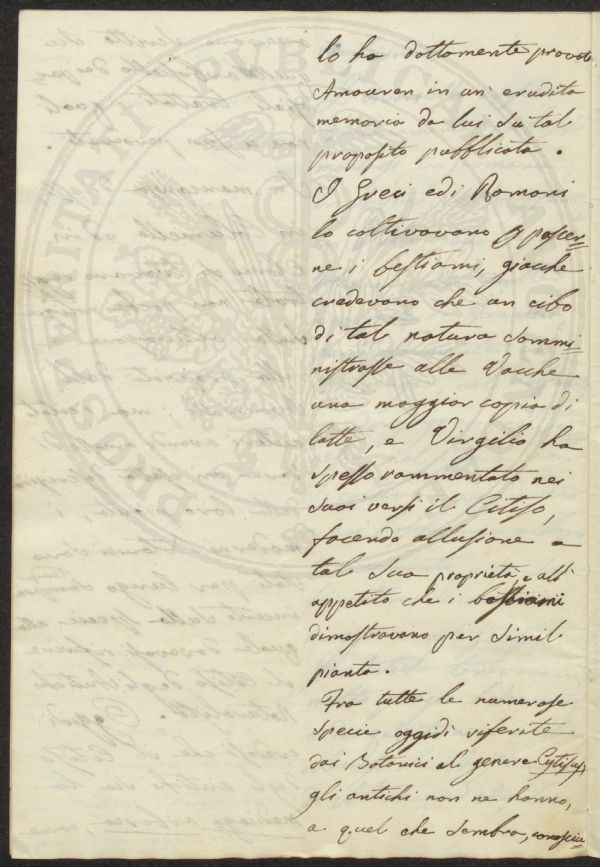 lo ha dottamente provato
Amoureu in un' erudita
memoria da lui su tal
proposito pubblicata.
I Greci ed i Romani
lo coltivavano p pascer=
ne i bestiami, giacchè
credevano che un cibo
di tal natura sommi=
nistrasse alle Vacche
una maggior copia di
latte, e Virgilio ha
spesso rammentato nei
suoi versi il Citiso,
facendo allusione a
tal sua proprietà, e all'
appetito che i bestiami
dimostravano per simil
pianta.
Fra tutte le numerose
specie oggidì riferite
dai Botanici al genere Cytisus
gli antichi non ne hanno,
a quel che sembra, conosciu=